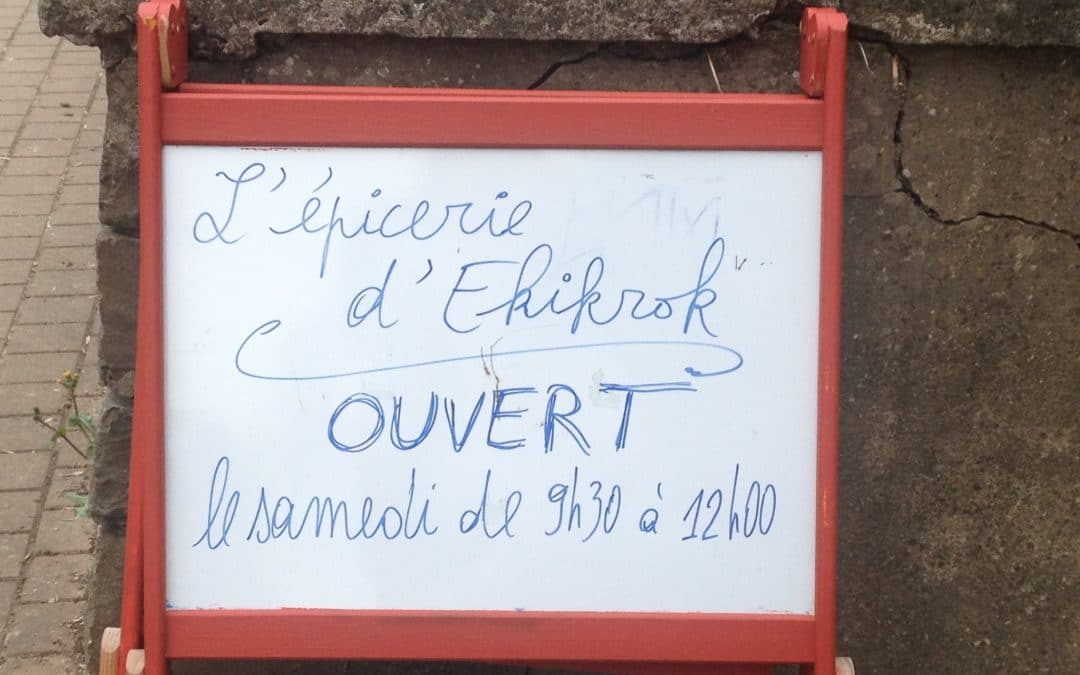 L'épicerie
d'Ekikrok
OUVERT
le samedi de 9h30 à 12h00